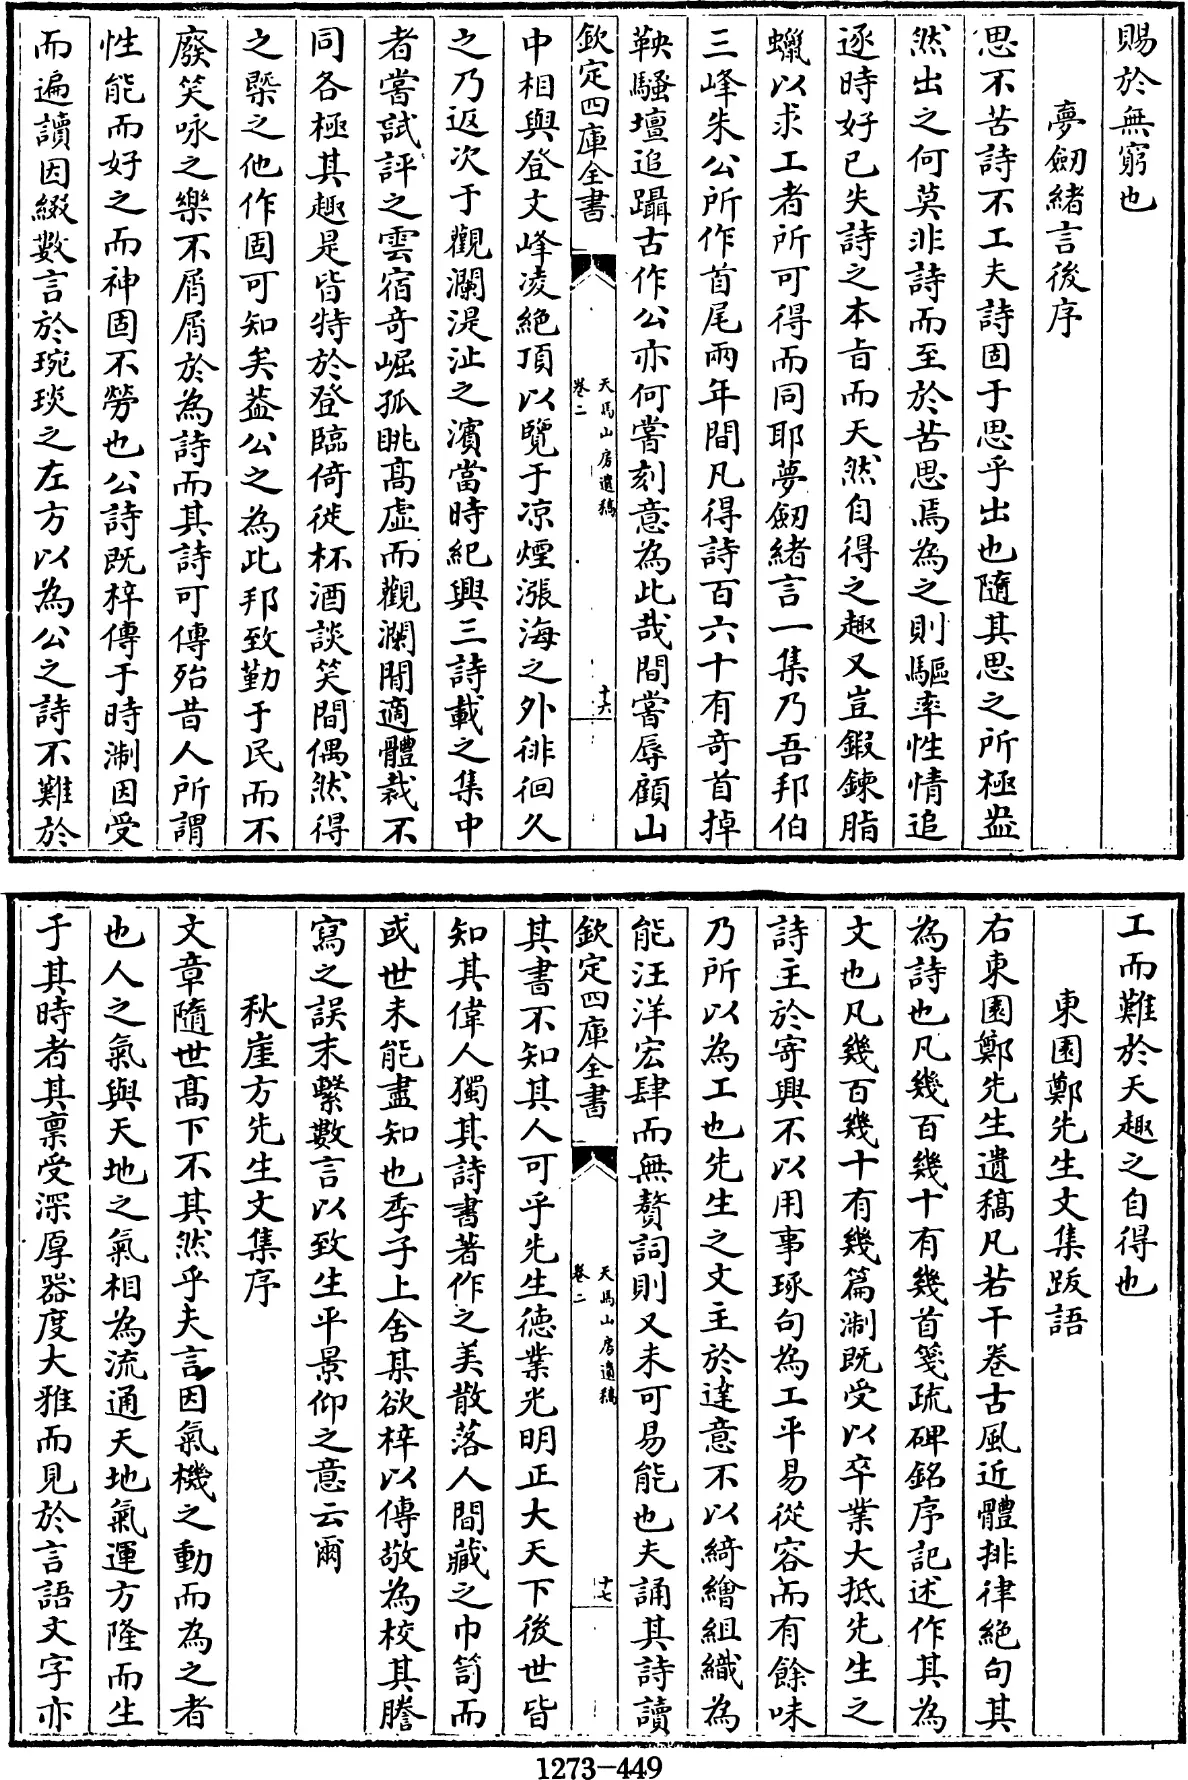 賜於無窮也
夢劒緒言後序
思不苦詩不工夫詩固于思乎出也隨其思之所極盎
然出之何莫非詩而至於苦思焉為之則驅率性情追
逐時好已失詩之本旨而天然自得之趣又豈鍜鍊脂
蠟以求工者所可得而同耶夢劒緒言一集乃吾邦伯
三峰朱公所作首尾兩年間凡得詩百六十有奇首掉
鞅騷壇追躡古作公亦何嘗刻意為此哉間嘗辱顧山
欽定四庫全書
天馬山房遺稿
卷二
十六
中相與登文峰凌絶頂以覽于凉煙漲海之外徘徊久
之乃返次于觀瀾湜沚之濱當時紀興三詩載之集中
者嘗試評之雲宿竒崛孤眺髙虚而觀瀾閒適體裁不
同各極其趣是皆特於登臨倚徙杯酒談笑間偶然得
之槩之他作固可知矣葢公之為此邦致勤于民而不
廢笑咏之樂不屑屑於為詩而其詩可傳殆昔人所謂
性能而好之而神固不勞也公詩既梓傳于時淛因受
而遍讀因綴數言於琬琰之左方以為公之詩不難於
工而難於天趣之自得也
東園鄭先生文集跋語
右東園鄭先生遺稿凡若干卷古風近體排律絶句其
為詩也凡幾百幾十有幾首箋疏碑銘序記述作其為
文也凡幾百幾十有幾篇淛既受以卒業大抵先生之
詩主於寄興不以用事琢句為工平易從容而有餘味
乃所以為工也先生之文主於達意不以綺繪組織為
能汪洋宏肆而無贅詞則又未可易能也夫誦其詩讀
欽定四庫全書
天馬山房遺稿
卷二
十七
其書不知其人可乎先生徳業光明正大天下後世皆
知其偉人獨其詩書著作之美散落人間藏之巾笥而
或世未能盡知也季子上舍某欲梓以傳敬為校其謄
寫之誤末繫數言以致生平景仰之意云爾
秋崖方先生文集序
文章隨世髙下不其然乎夫言因氣機之動而為之者
也人之氣與天地之氣相為流通天地氣運方隆而生
于其時者其禀受深厚器度大雅而見於言語文字亦
1273-449